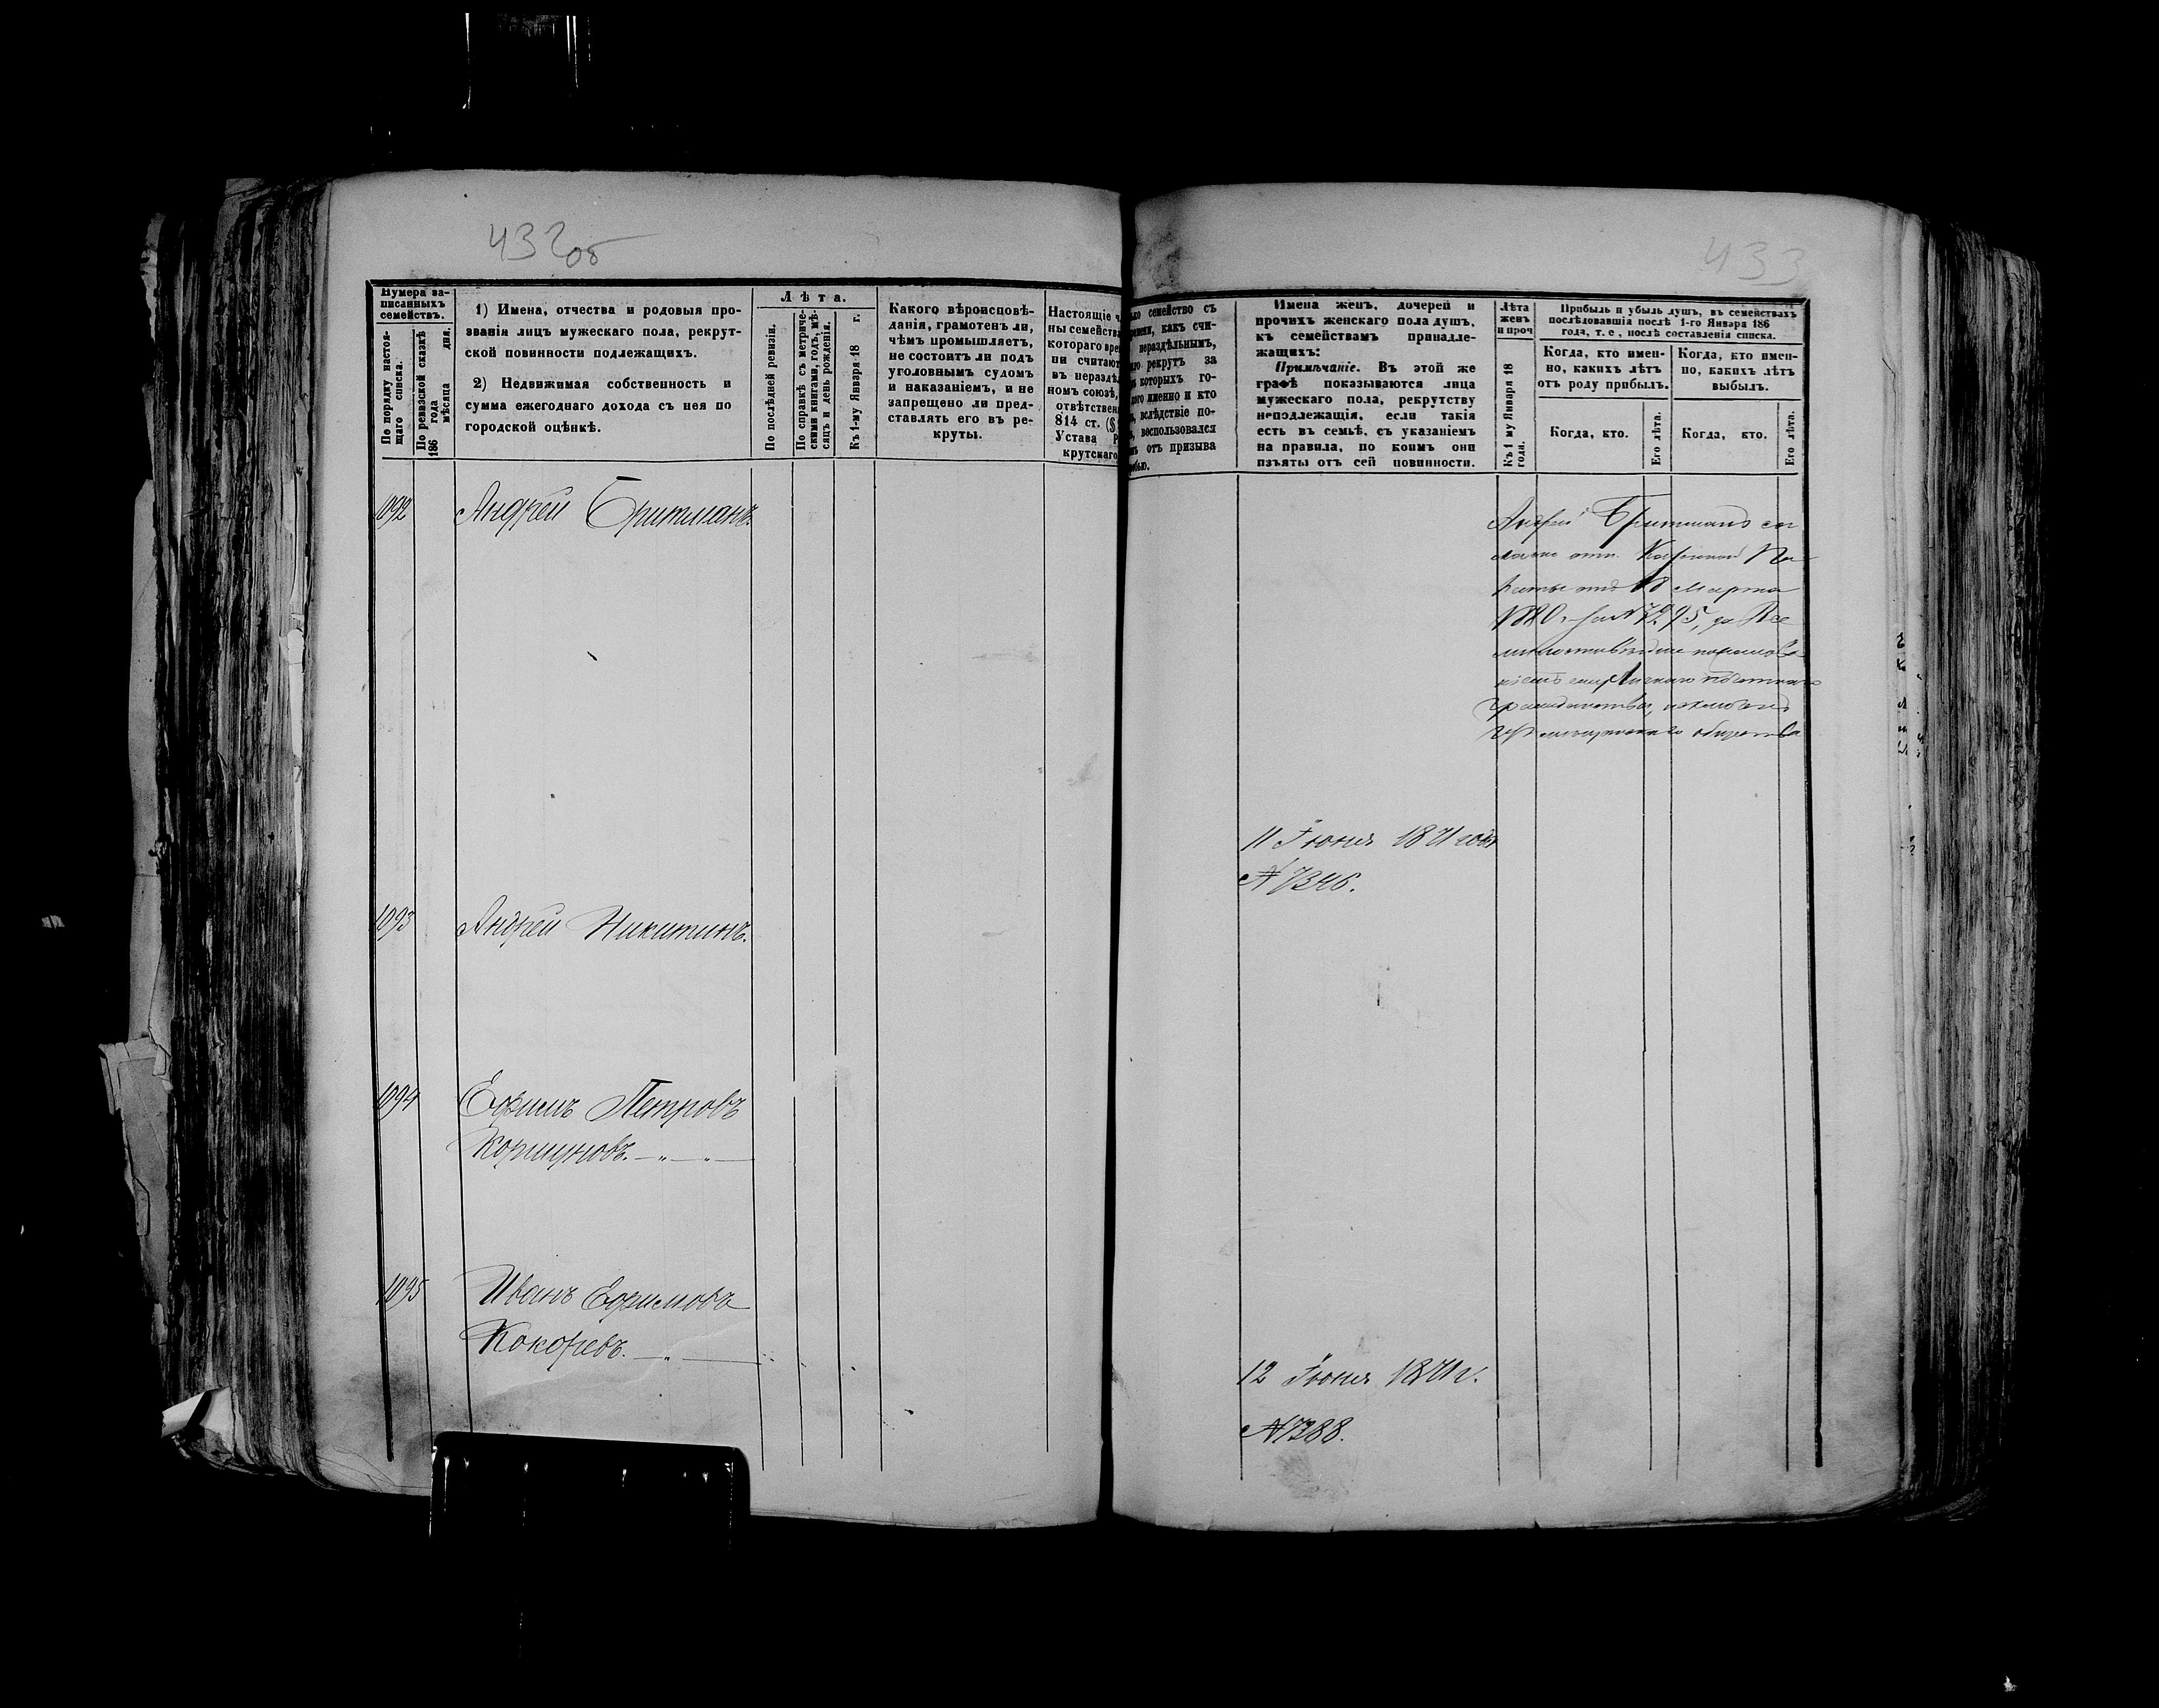 432об
433
Нумера за-
писанныхъ
семействъ.
По порядку настоя-
щаго списка.
По ревизской сказкѣ
186 года мѣсяца дня.
1) Имена, отчества и родовыя про-
званія лицъ мужескаго пола, рекрут-
ской повинности подлежащихъ.
2) Недвижимая собственность и
сумма ежегоднаго дохода съ нея по
городской оцѣнкѣ.
Лѣта.
По послѣдней ревизіи.
По справкѣ съ метриче-
скими книгами, годъ, мѣ-
сяцъ и день рожденія.
Къ 1-му Января 18 г.
Какого вѣроисповѣ-
данія, грамотенъ ли,
чѣмъ промышляетъ,
не состоитъ ли подъ
уголовнымъ судомъ
и наказаніемъ, и не
запрещено ли пред-
ставлять его въ ре-
круты.
Настоящіе
ны семейства
котораго
ни считают
въ нераздѣ
номъ союзѣ,
отвѣтствен
814 ст.
Устава Р
крутскаго
семейство съ
какъ счи-
нераздѣльнымъ,
рекрутъ за
которыхъ го-
именно и кто
вслѣдствіе по-
воспользовался
отъ призыва
Имена женъ, дочерей и
прочихъ женскаго пола душъ,
къ семействамъ принадле-
жащихъ:
Примѣчаніе. Въ этой же
графѣ показываются лица
мужескаго пола, рекрутству
неподлежащія, если такія
есть въ семьѣ, съ указаніемъ
на правила, по коимъ они
изъяты отъ сей повинности.
Лѣта
женъ
и проч
Къ 1 му Января 18
года.
Прибыль и убыль душъ, въ семействахъ
послѣдовавшія послѣ 1-го Января 186
года, т. е, послѣ составленія списка.
Когда, кто имен-
но, какихъ лѣтъ
отъ роду прибылъ.
Когда, кто имен-
но, какихъ лѣтъ
выбылъ.
Когда, кто.
Его лѣта.
Когда, кто.
Его лѣта.
1092 Андрей Бритманъ.
Андрей Бритманъ сог
Казенной Па
латы отъ 18 Марта
1880. за №
гражданства, исключенъ
общества
11 Іюня 1871 года
№ 7346.
1093 Андрей Никитинъ.
1094 Ефимъ Петровъ
Коршуновъ. — „ — „ —
1095 Иванъ Ефимовъ
Кокоревъ. — „ —
12 Іюня 1871 г.
№ 7388.